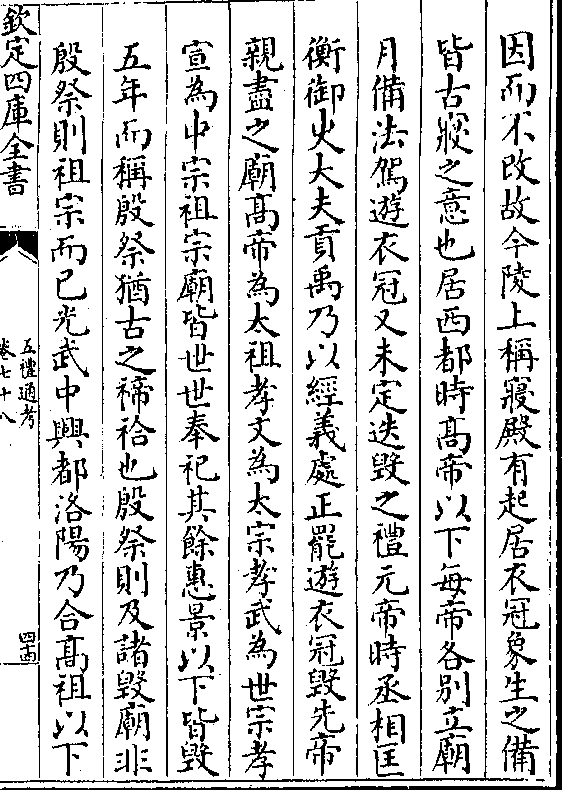 因而不改故今陵上稱寢殿有起居衣冠象生之備
皆古寢之意也居西都時髙帝以下每帝各别立廟
月備法駕遊衣冠又未定迭毁之禮元帝時丞相匡
衡御史大夫貢禹乃以經義處正罷遊衣冠毁先帝
親盡之廟髙帝為太祖孝文為太宗孝武為世宗孝
宣為中宗祖宗廟皆世世奉祀其餘惠景以下皆毁
五年而稱殷祭猶古之禘祫也殷祭則及諸毁廟非
殷祭則祖宗而已光武中興都洛陽乃合髙祖以下
欽定四庫全書
五禮通考
卷七十八
四十四